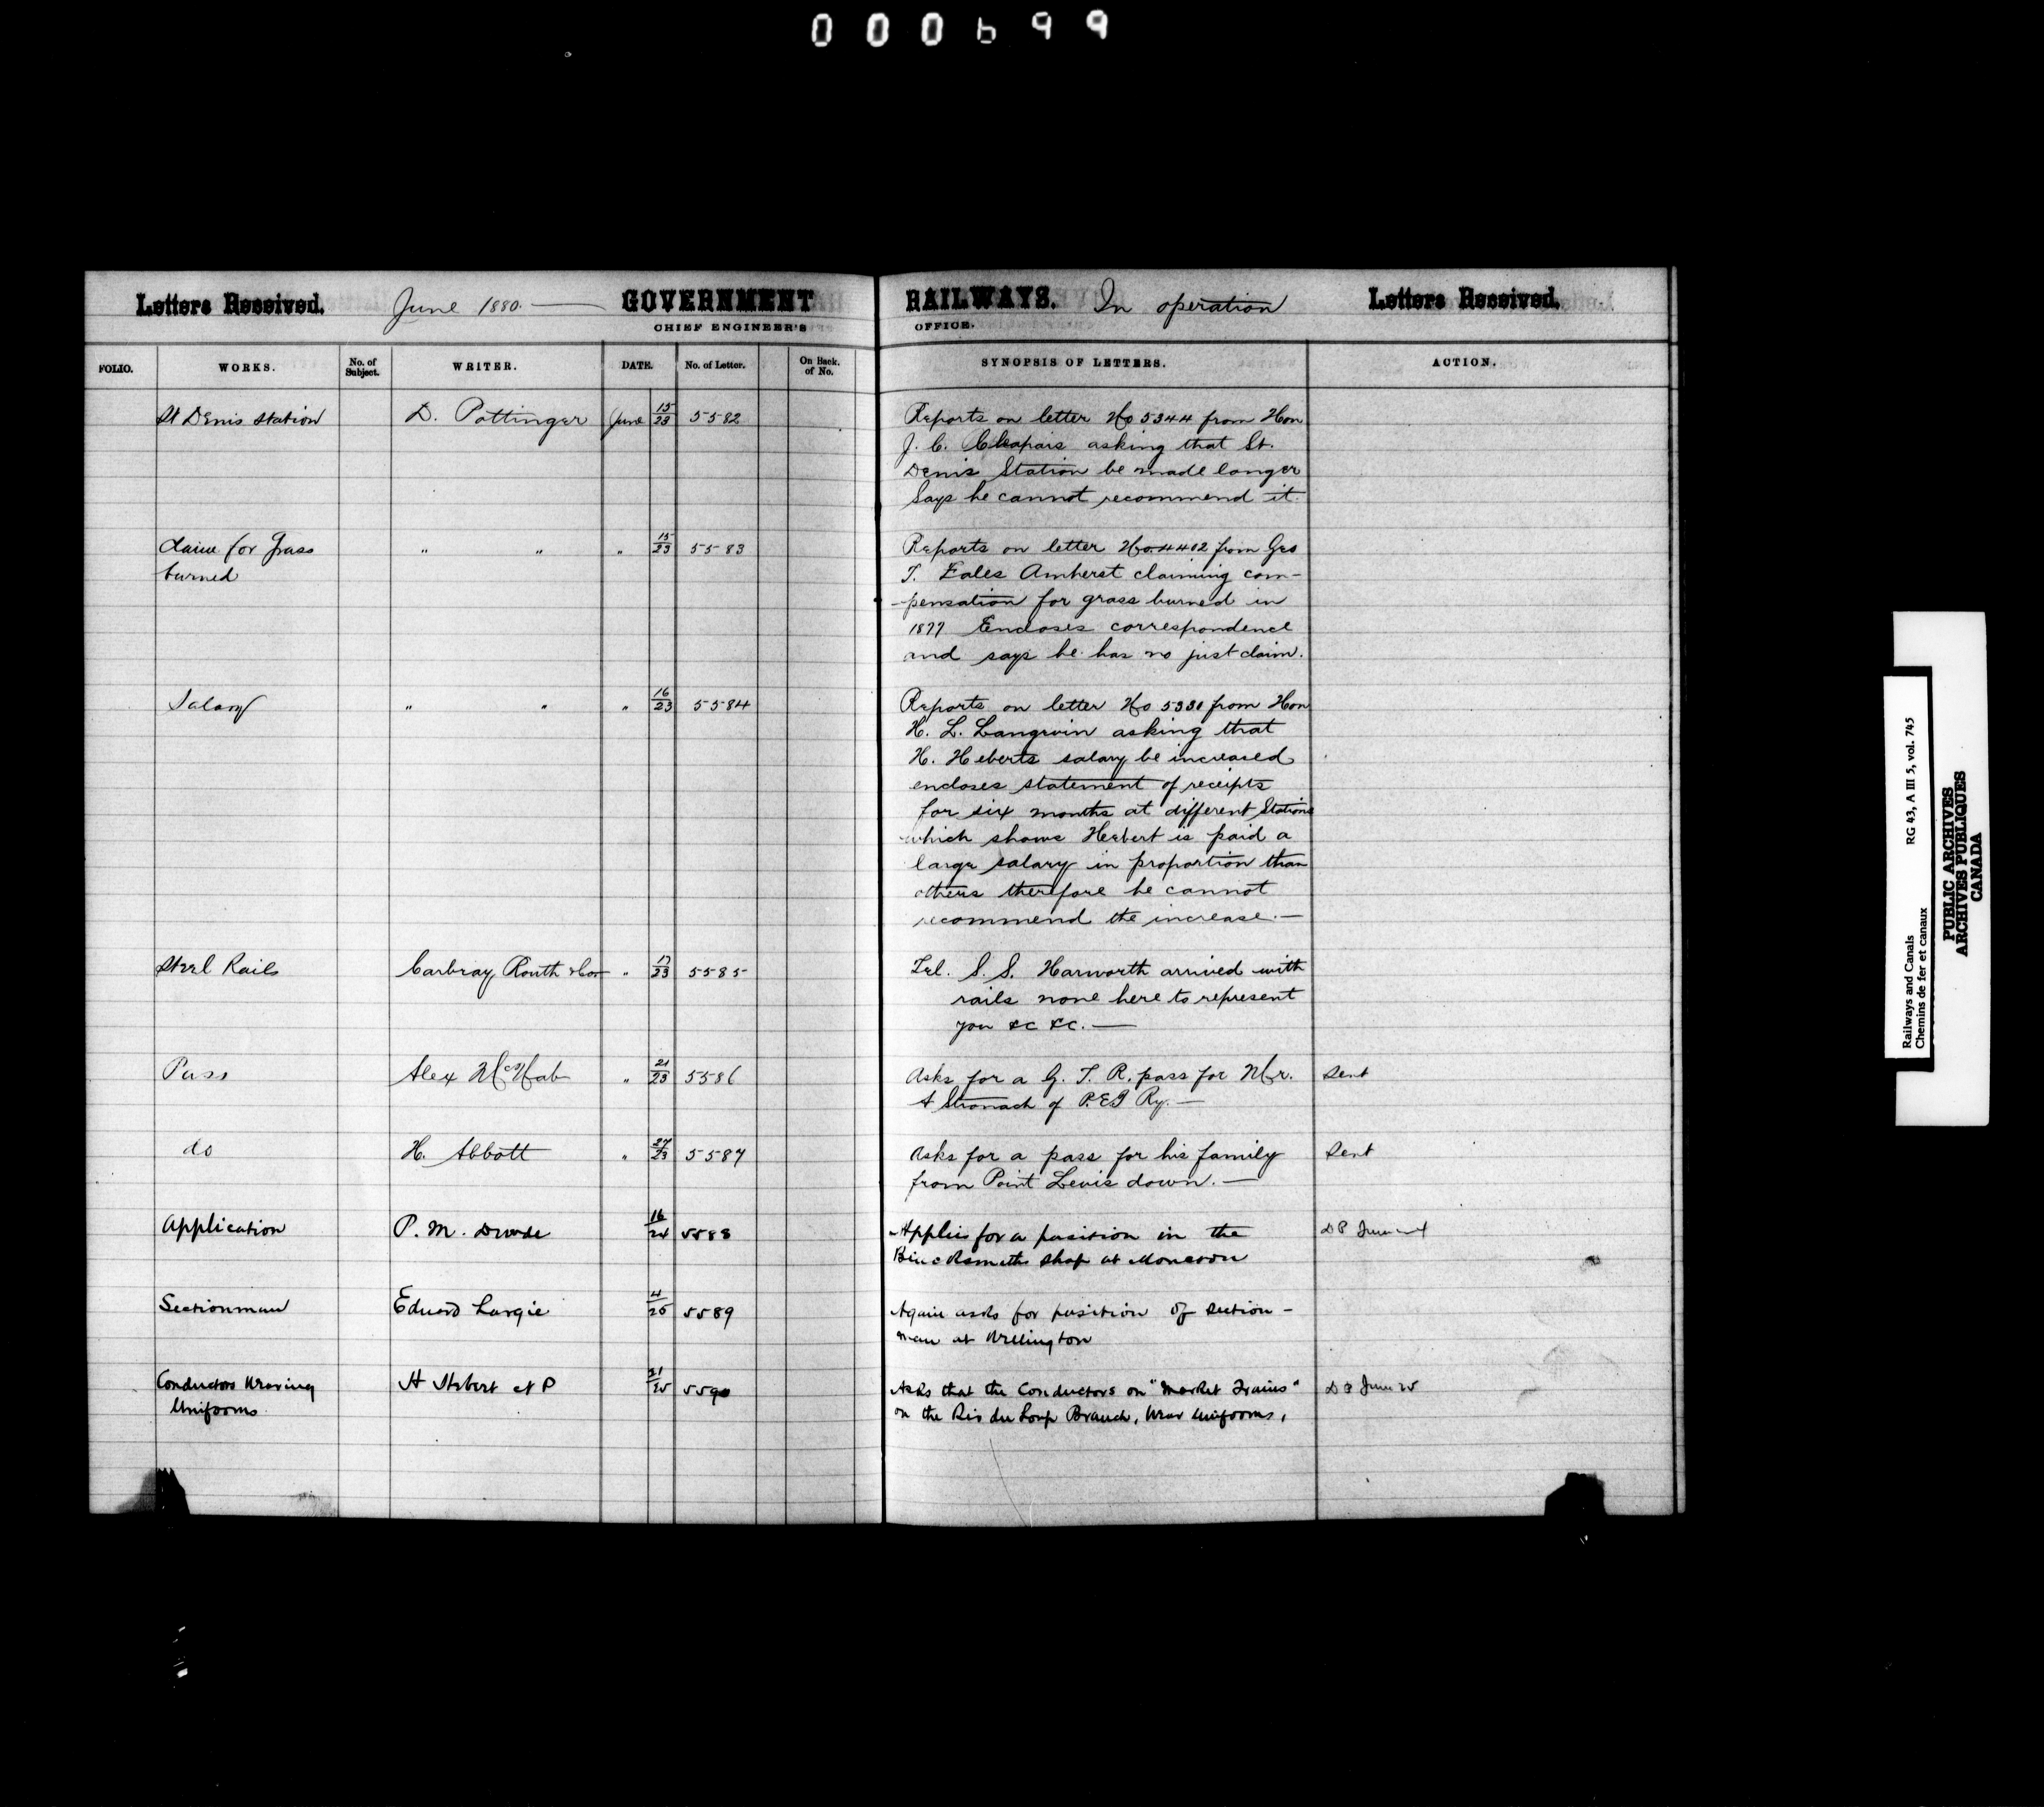 000699
Letters Received. June 1880. — GOVERNMENT RAILWAYS. In operation Letters Received.
CHIEF ENGINEER'S OFFICE.
FOLIO. WORKS. No. of Subject. WRITER. DATE. No. of Letter. On Back. of No. SYNOPSIS OF LETTERS. ACTION.
St Denis Station D. Pottinger June 15/23 5582 Reports on letter No 5344 from Hon
J. C. Chapais asking that St.
Denis Station be made longer
Says he cannot recommend it.
Claim for Grass " " " 15/23 5583 Reports on letter No. 4402 from Geo
burned T. Eales Amherst claiming com-
-pensation for grass burned in
1877 Encloses correspondence
and says he has no just claim.
Salary " " " 16/23 5584 Reports on letter No 5330 from Hon
H. L. Langevin asking that
H. Heberts salary be increased
encloses statement of receipts
for six months at different Stations
which shows Hebert is paid a
large salary in proportion than
others therefore he cannot
recommend the increase. —
Steel Rails Carbray, Routh & Co " 17/23 5585 Tel. S. S. Harworth arrived with
rails none here to represent
you &c &c. —
Pass Alex McNab " 21/23 5586 Asks for a G. T. R. pass for Mr. Sent
A Stronach of P.E.I Ry. —
do H. Abbott " 5587 Asks for a pass for his family Sent
from Point Levis down. —
Application P. M. 16/24 5588 Applies for a position in the D P June
Blacksmiths shop at Moncton
Sectionman Edward Largie 4/25 5589 Again asks for position of section-
man at Wellington
Conductors Wearing H Hebert 21/25 5590 Asks that the Conductors on "Market Trains" June 25
Uniforms on the Riv du Loup Branch, Wear Uniforms,
Railways and Canals RG 43, A III 5, vol. 745
Chemins de fer et canaux
PUBLIC ARCHIVES
ARCHIVES PUBLIQUES
CANADA